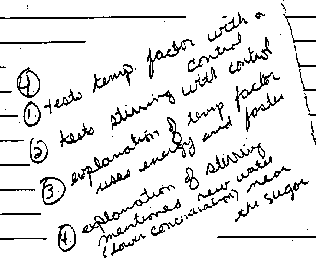 ④
① tests temp. factor with a control
② tests stirring with control
③ explanation of temp factor
uses energy and faster
④ explanation of stirring
mentiones new water
(lower concentration) near
the sugar